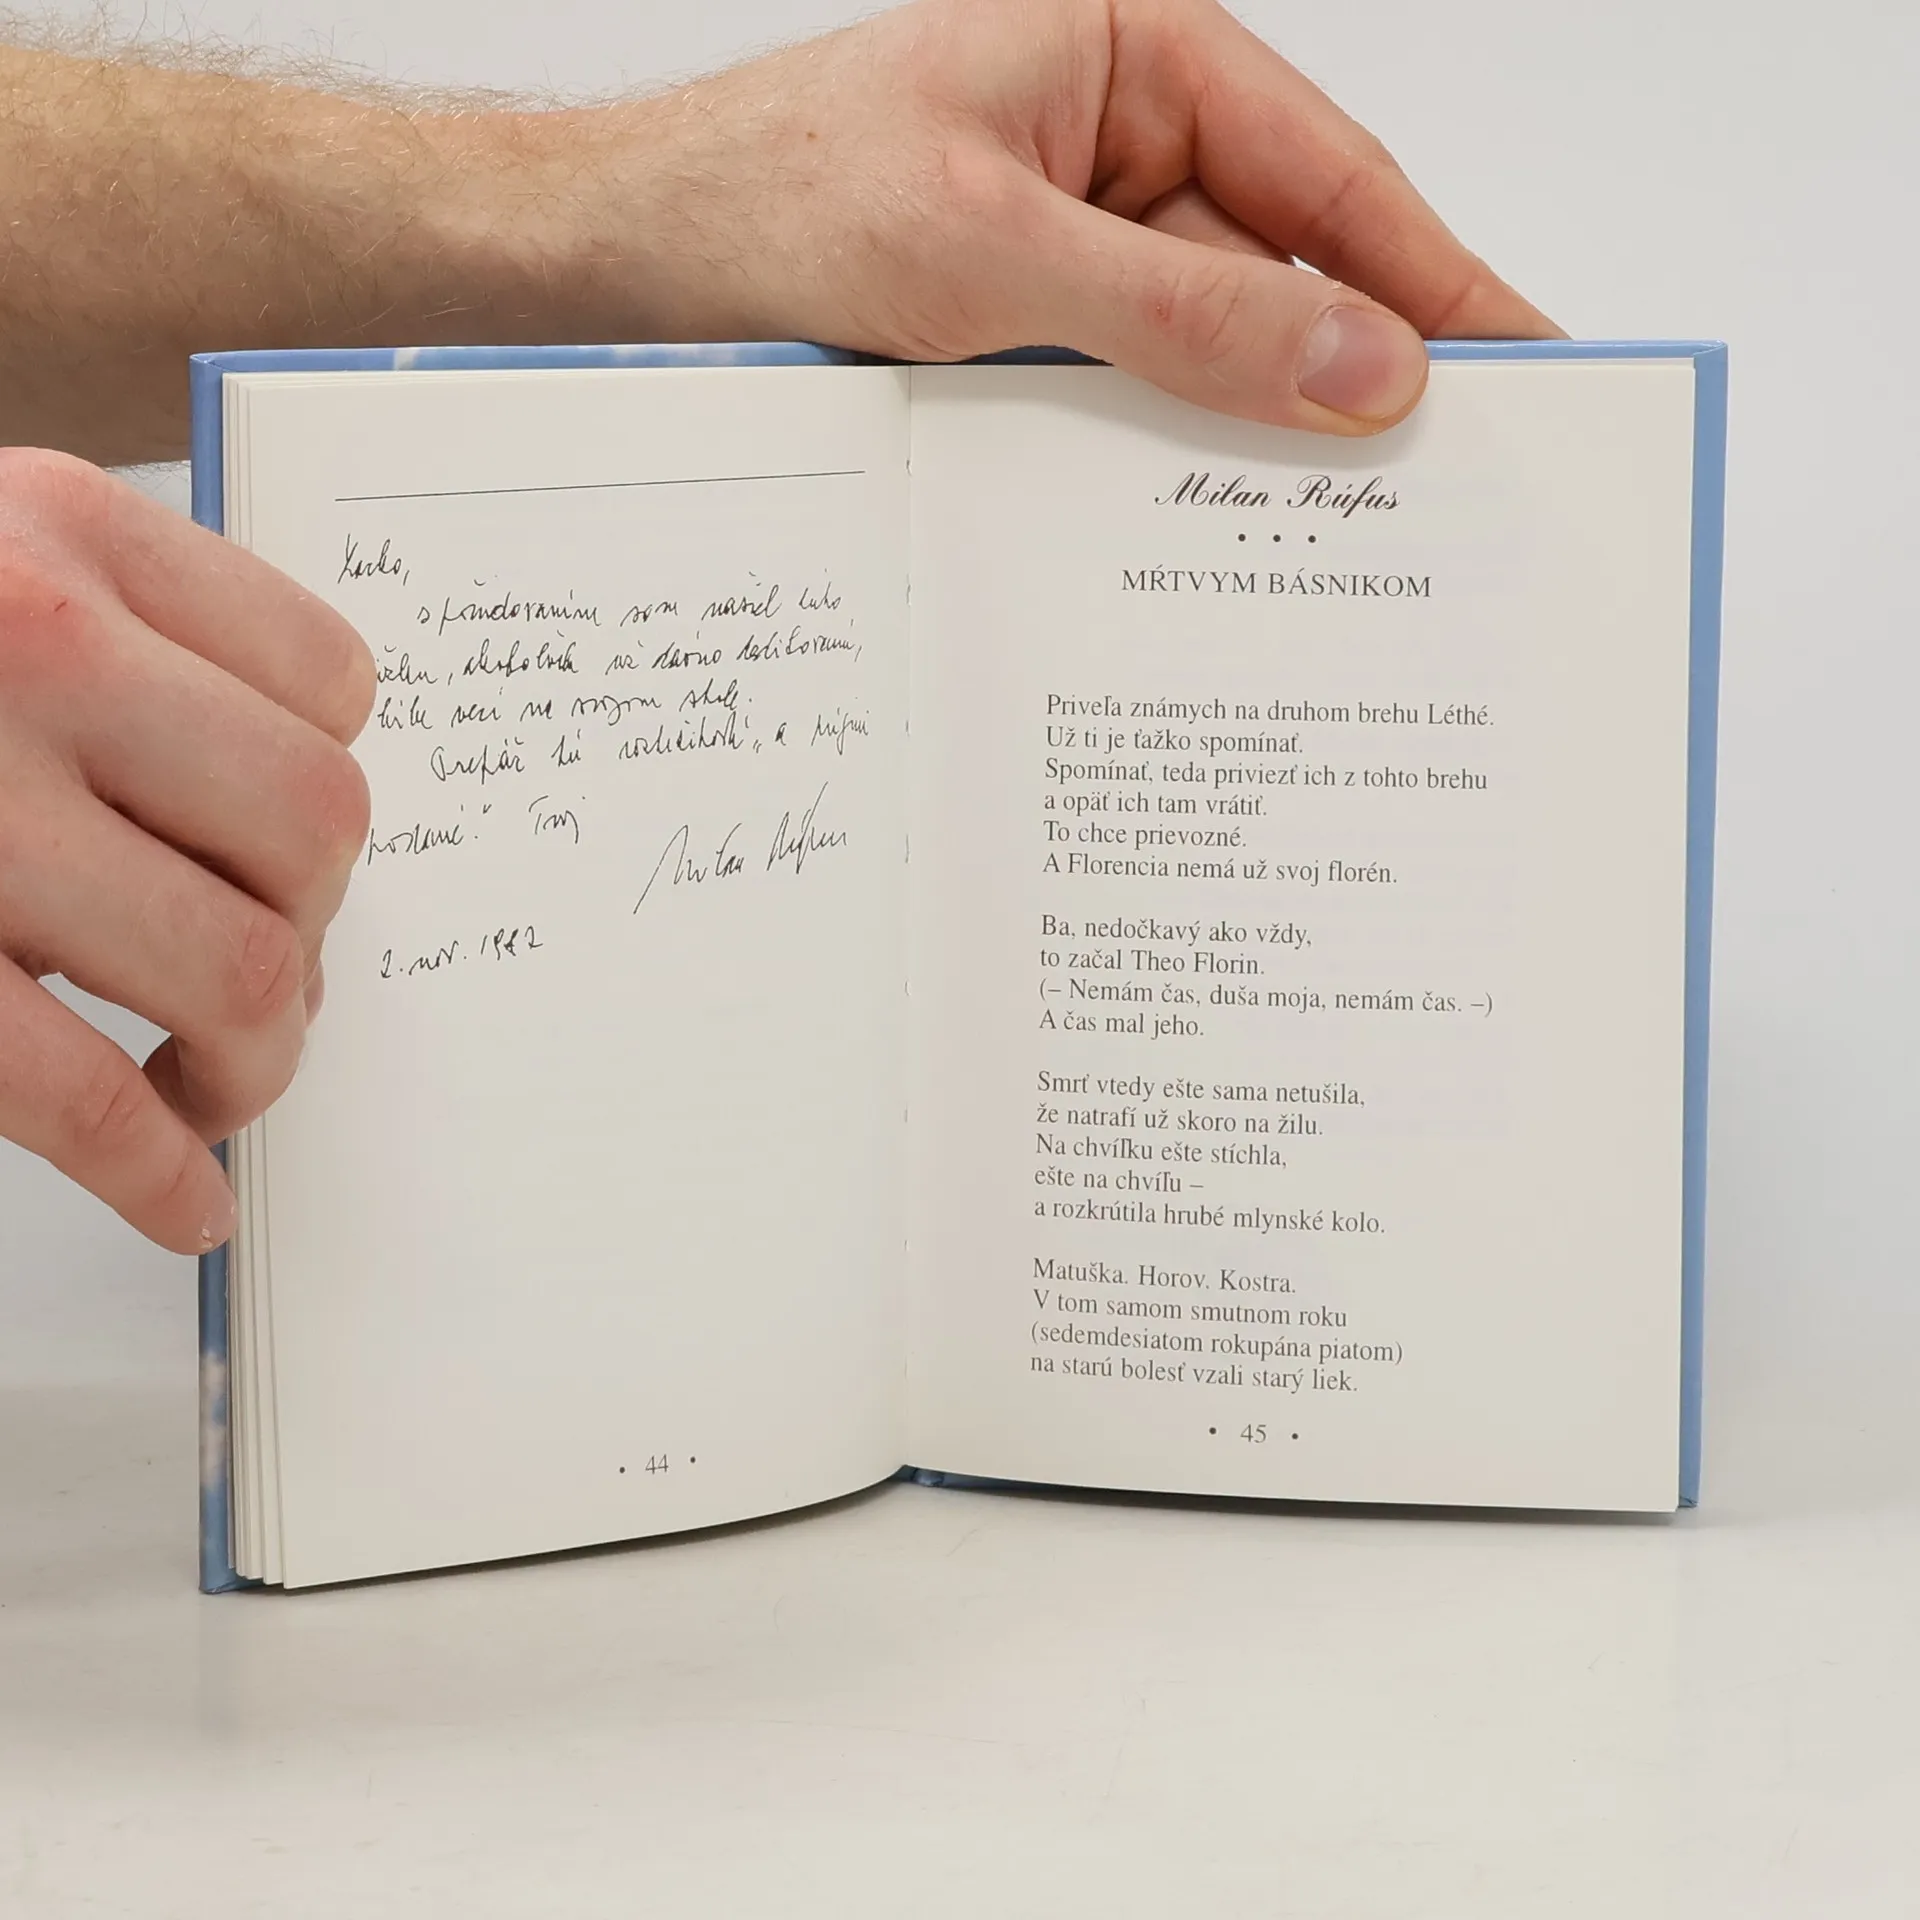 s som našiel túto
už dávno
veci na svojom stole.
Prepáč tú a mojimi
Tvoj
Milan Rúfus
2. nov.
• 44 •
Milan Rúfus
• • •
MŔTVYM BÁSNIKOM
Priveľa známych na druhom brehu Léthé.
Už ti je ťažko spomínať.
Spomínať, teda priviezť ich z tohto brehu
a opäť ich tam vrátiť.
To chce prievozné.
A Florencia nemá už svoj florén.
Ba, nedočkavý ako vždy,
to začal Theo Florin.
(– Nemám čas, duša moja, nemám čas. –)
A čas mal jeho.
Smrť vtedy ešte sama netušila,
že natrafí už skoro na žilu.
Na chvíľku ešte stíchla,
ešte na chvíľu –
a rozkrútila hrubé mlynské kolo.
Matuška. Horov. Kostra.
V tom samom smutnom roku
(sedemdesiatom rokupána piatom)
na starú bolesť vzali starý liek.
• 45 •